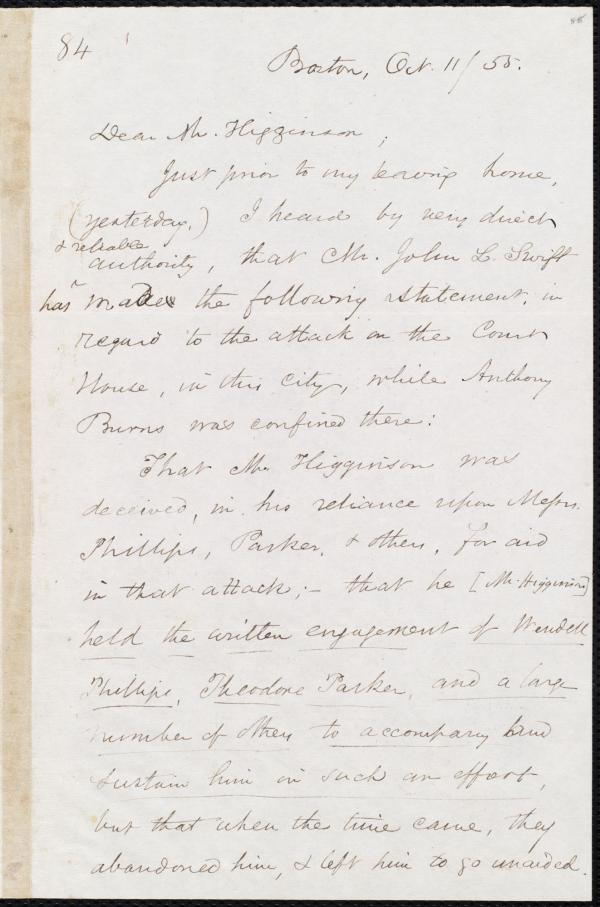 84
Boston, Oct. 11/55.
Dear Mr. Higginson,
Just prior to my leaving home,
(yesterday,) I heard by very direct
& reliable
authority, that Mr. John L. Swift
has made the following statement, in
regard to the attack on the Court
House, in this city, while Anthony
Burns was confined there:
That Mr. Higginson was
deceived, in his reliance upon Messrs.
Phillips, Parker, & others, for aid
in that attack; - that he [Mr. Higginson]
held the written engagement of Wendell
Phillips, Theodore Parker, and a large
number of others to accompany and
sustain him in such an effort,
but that when the time came, they
abandoned him, & left him to go unaided.